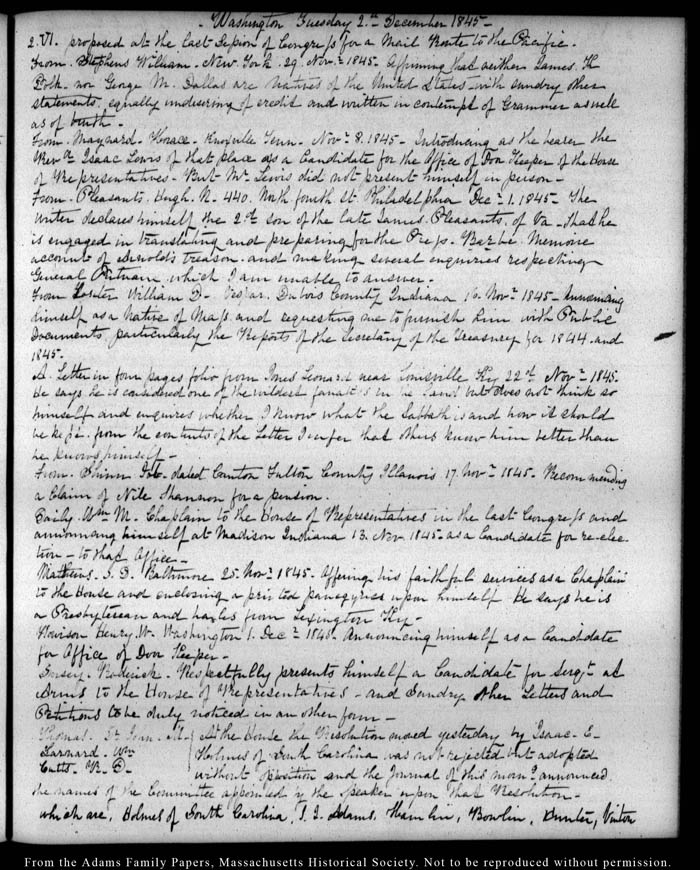 Washington Tuesday 2.d December 1845-
2.VI. proposed at the last Session of Congress for a Mail Route to the Pacific.
From Stephens William. New York. 29. Novr. 1845. affirming that neither James K
Polk nor George M. Dallas are natives of the United States with sundry other
statements, equally undeserving of credit and written in contempt of Grammar as well
as of truth.
From Maynard. Horace. Knoxville Tenn. Novr. 8. 1845. Introducing as the bearer the
Revd. Isaac Lewis of that place as a Candidate for the Office of Door Keeper of the House
of Representatives. But Mr. Lewis did not present himself in person-
From. Pleasants, Hugh. R. 440. North fourth St. Philadelphia Decr. 1. 1845. The
writer declares himself the 2d. son of the late James Pleasants, of Va. that he
is engaged in translating and preparing for the Press. Barbé Memoire
account of Arnold's treason. and making several enquiries respecting
General Putnam which I am unable to answer.
From William D. Dubois County Indiana 16. Novr. 1845. Announcing
himself as a native of Mass. and requesting me to furnish him with Public
Documents, particularly the Reports of the Secretary of the Treasury for 1844. and
1845.
A Letter in four pages folio from Leonard near Louisville Ky. 22d. Novr. 1845.
He says he is considered one of the wildest fanatics in the land but does not think so
himself and enquires whether I know what the Sabbath is and how it should
be kept. from the contents of the Letter I infer that others know him better than
he knows himself-
From. dated Canton Fulton County Illinois 17. Novr. 1845. Recommending
a Claim of Nile Shannon for a pension.
Daily. Wm. M. Chaplain to the House of Representatives in the last Congress and
announcing himself at Madison Indiana 13. Nov. 1845. as a Candidate for re-elec
tion- to that Office-
Mathews. J. D. Baltimore 25. Novr. 1845. Offering his faithful services as a Chaplain
to the House and enclosing a printed panegyric upon himself. He says he is
a Presbyterian and hails from Lexington Ky-
Howison Henry. W. Washington 1. Decr. 1845. Announcing himself as a Candidate
for Office of Door Keeper-
Dorsey. Roderick. Respectfully presents himself a Candidate for Sergt. at
Arms to the House of Representatives- and Sundry other Letters and
Petitions to be duly noticed in an other form-
Thomas. Dr. Jenn. M. At the House the Resolution moved yesterday by Isaac. E.
Barnard. Wm Holmes of South Carolina was not rejected but adopted
Cutts. R. D. without opposition and the Journal of this morng. announced
the names of the Committee appointed by the Speaker upon that Resolution-
which are, Holmes of South Carolina, J. Q. Adams. Hamlin, Bowlin, Hunter, Vinton
From the Adams Family Papers, Massachusetts Historical Society. Not to be reproduced without permission.